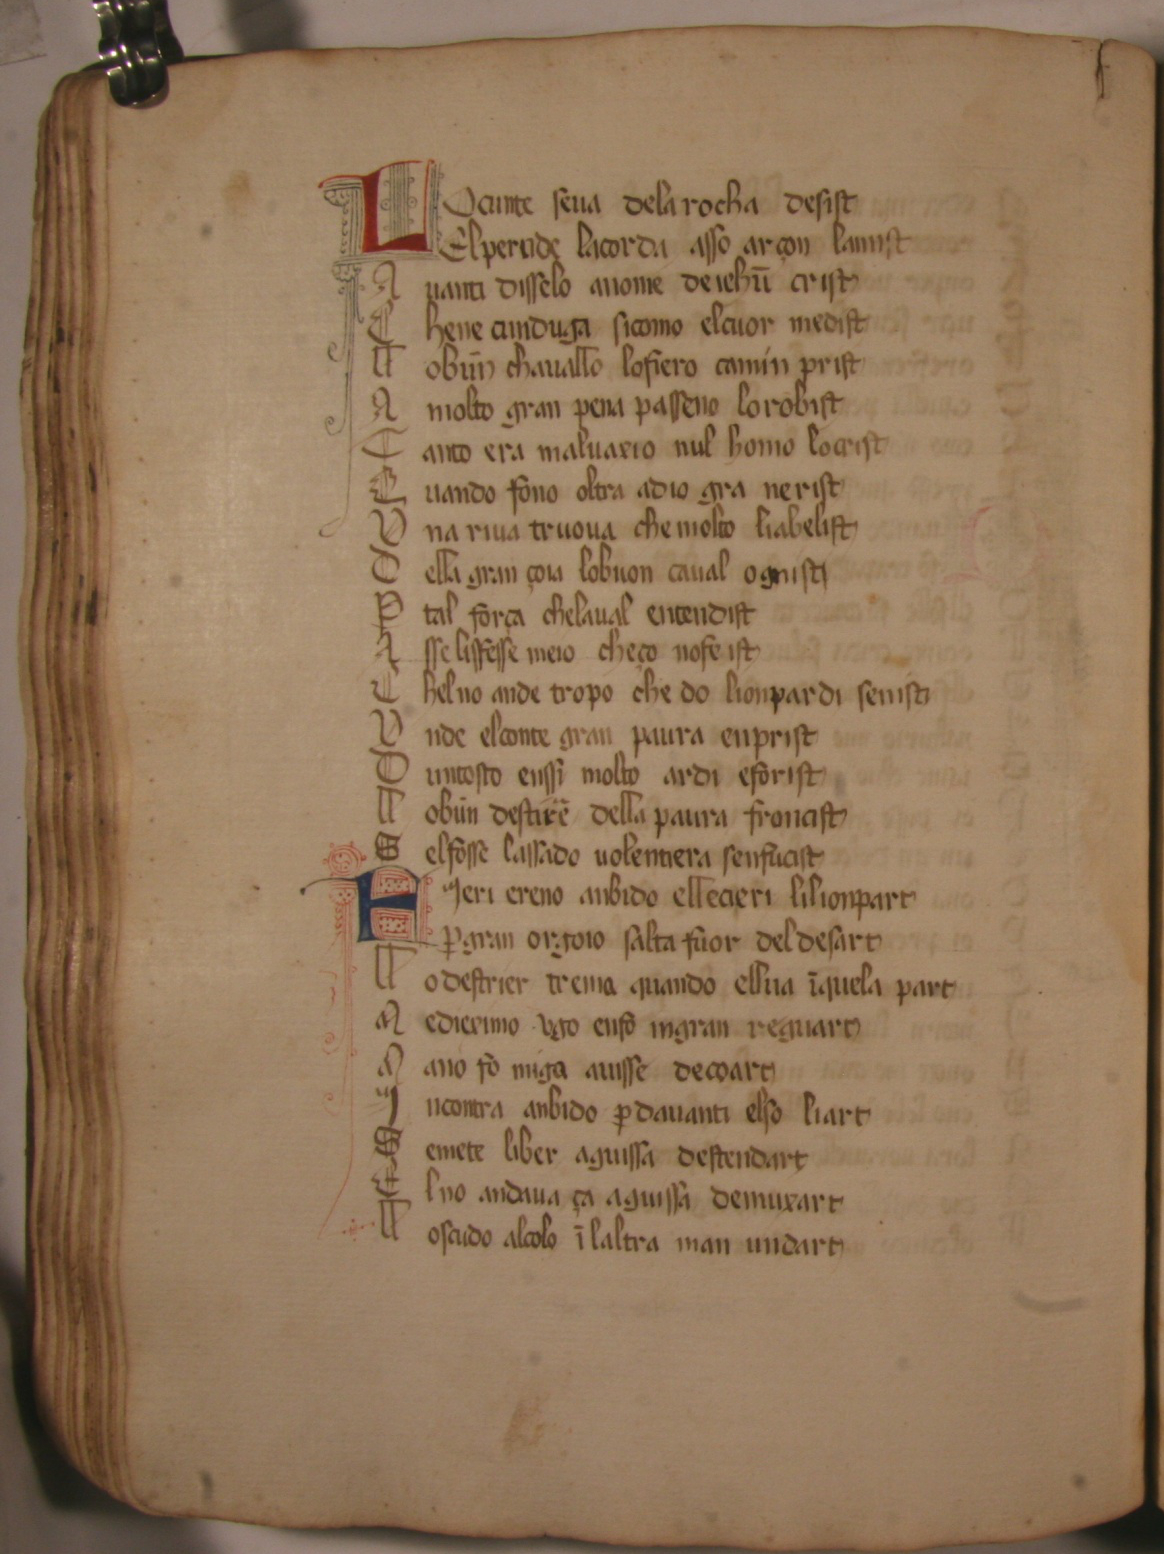 LOcunte seua dela rocha desist
Elprende lacorda asso arçon lamist
A uanti disselo anome deiehū crist
C hene cunduga sicomo elcuor medist
L obūn chauallo lofiero camin prist
A molto gran pena passeno lorobist
T anto era maluaxio nul homo locrist
Q uando fono oltra adio gra nerist
V na riua truoua che molto liabelist
D ella gran çoia lobuon caual ognisti
P tal força chelaual entendist
A sse lisfesse meio cheço nofeist
C helno ande tropo che do lionpardi senisti
V nde elconte gran paura enprist
D untosto enssi molto ardi eforist
L obūn destirē della paura froncist
S elfosse lassado uolentiera senfucist
FIeri ereno anbido ellecieri lilionpart
p̲ gran orgoio salta fuor deldesart
L o destrier trema quando elluа īquela part
M ediexmo vgo enfo ingran reguart
M ano fo miga auisse decoart
I ncontra anbido p̲ dauanti elso liart
S emete liber aguissa destendart
E lno andaua ça aguissa demuxart
L oscudo alcolo ī laltra man undart